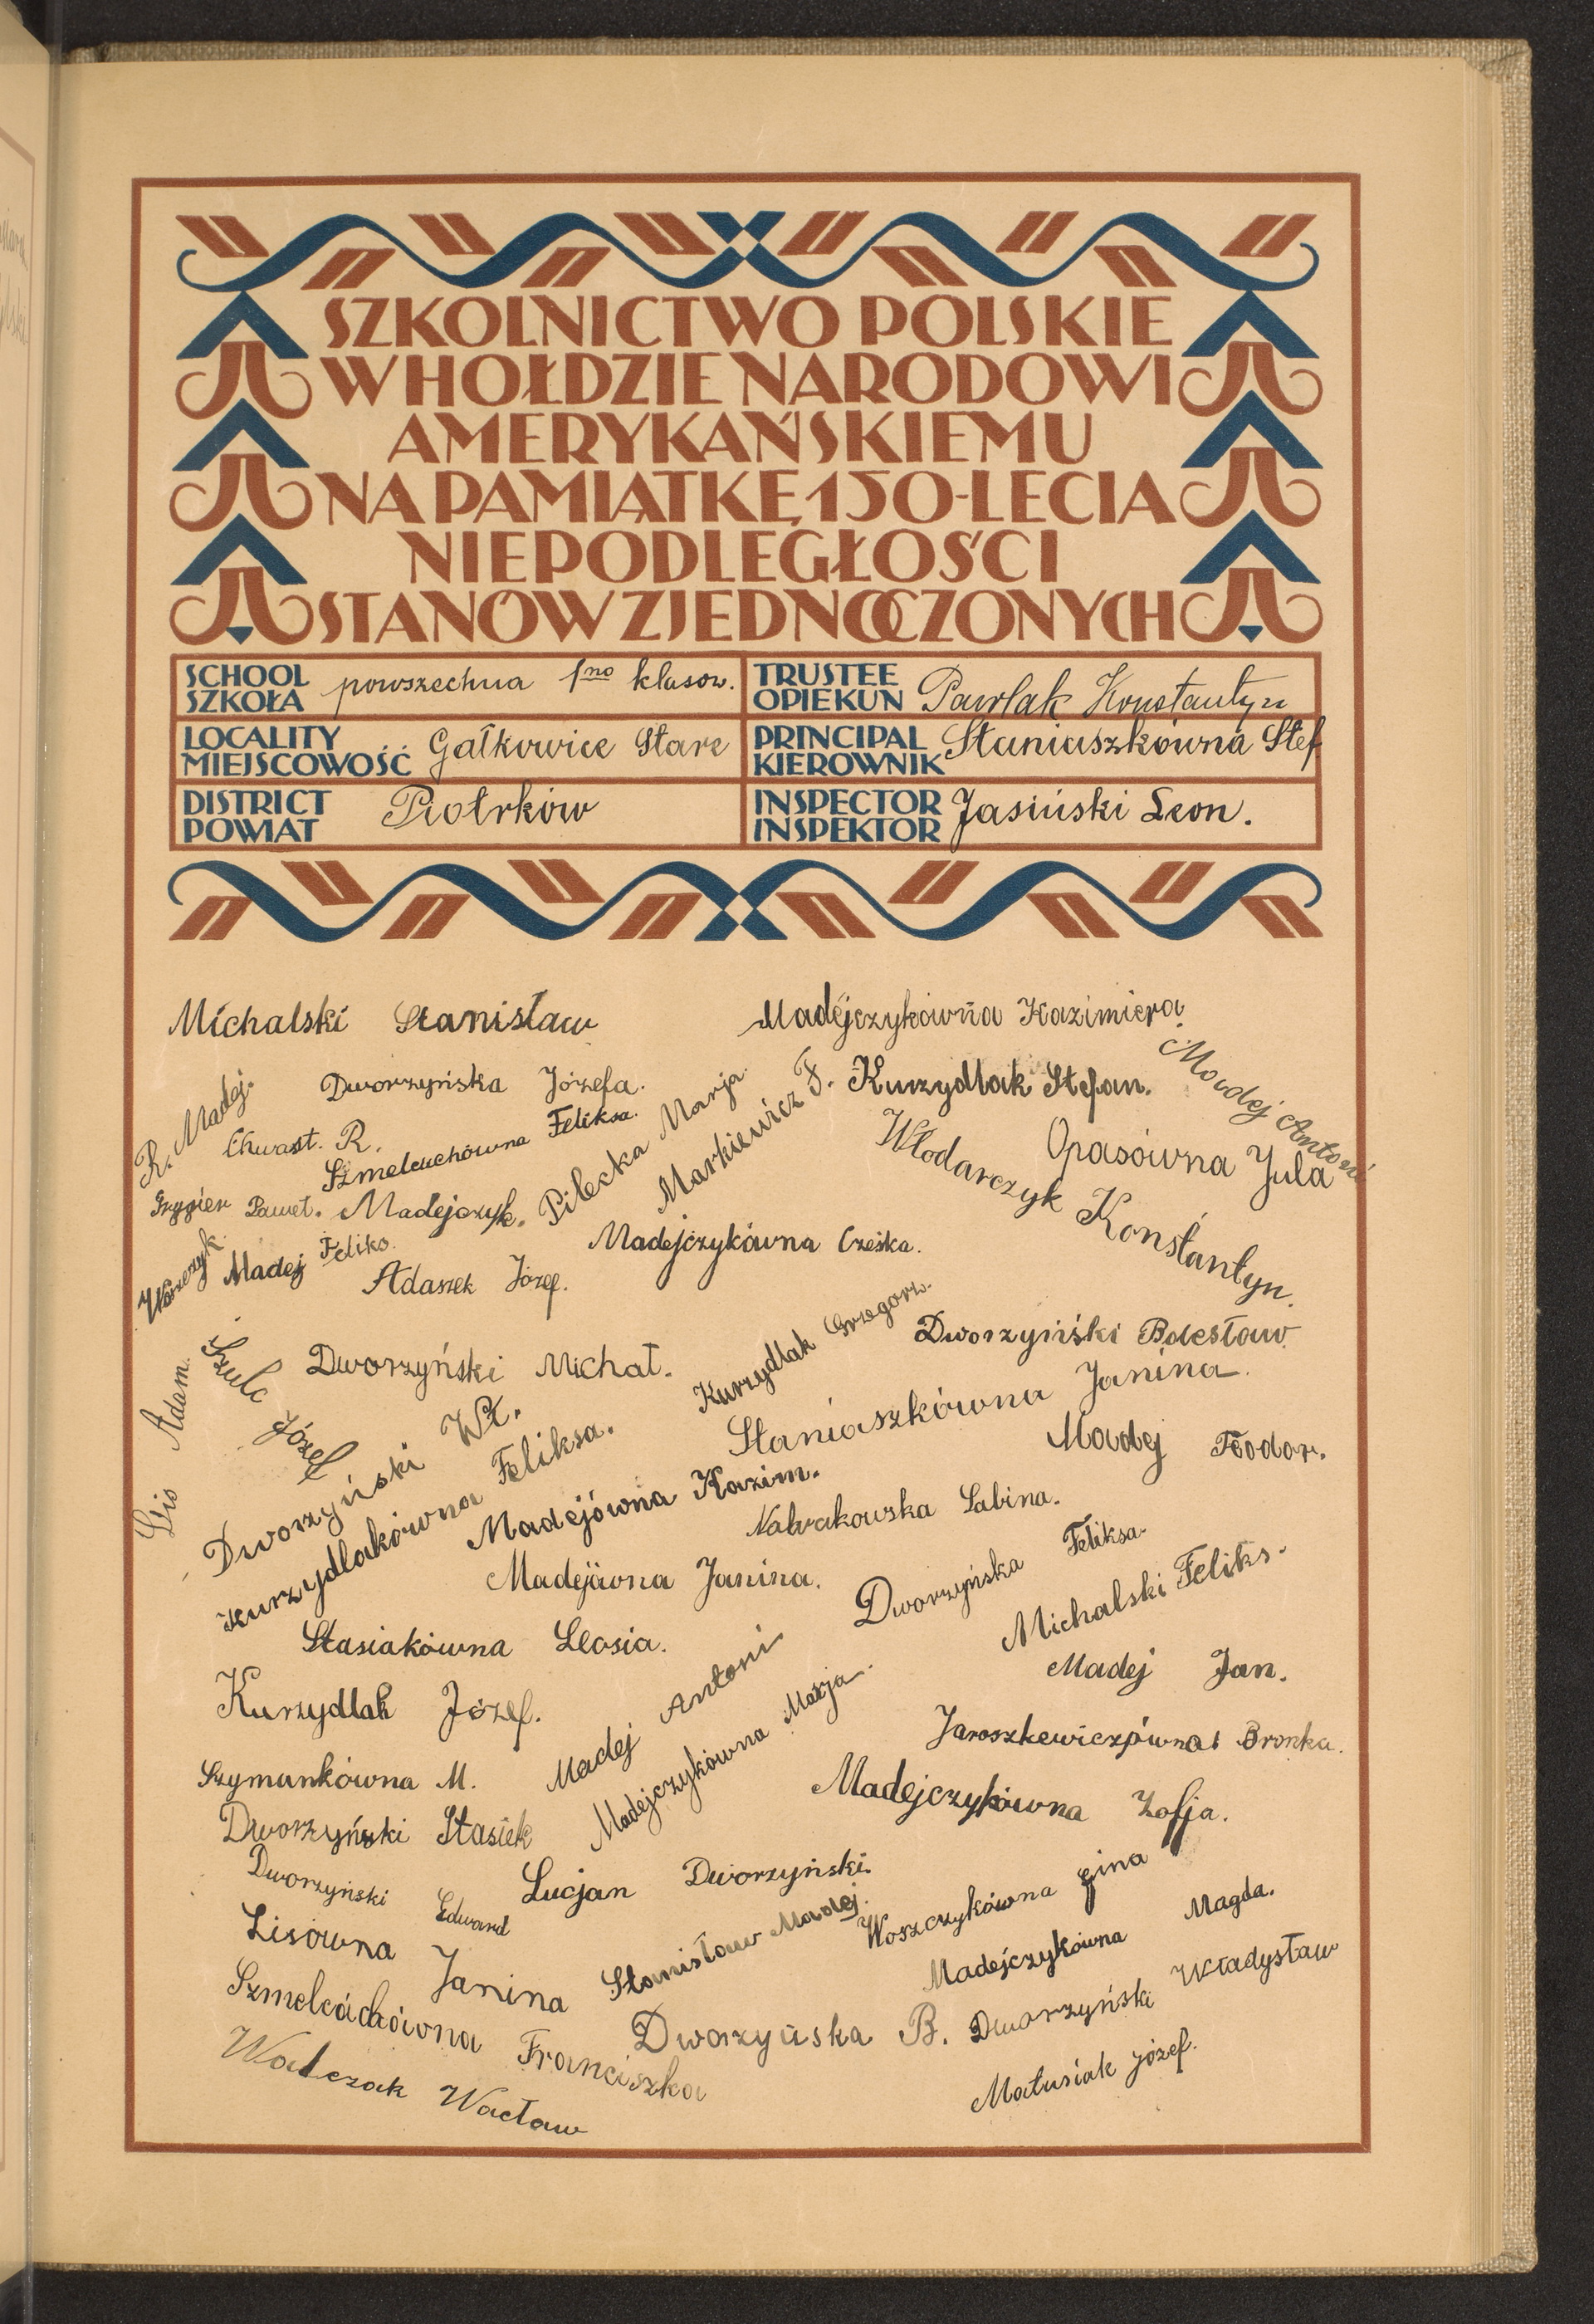 SZKOLNICTWO POLSKIE
W HOŁDZIE NARODOWI
AMERYKAŃSKIEMU
NA PAMIĄTKĘ 150-LECIA
NIEPODLEGŁOŚCI
STANÓW ZJEDNOCZONYCH
SCHOOL
SZKOŁA
powszechna 1no klasow.
TRUSTEE
OPIEKUN
Pawlak Konstantyn
LOCALITY
MIEJSCOWOŚĆ
Gałkowice Stare
PRINCIPAL
KIEROWNIK
Staniaszkówna Stef.
DISTRICT
POWIAT
Piotrków
INSPECTOR
INSPEKTOR
Jasiński Leon.
Michalski Stanisław
Madejczykówna Kazimiera
R. Madej.
Dworzyńska Józefa.
Kurzydlak Stefan.
Madej Antoni
Chwast. R.
Szmelcuchówna Feliksa.
Pilecka Marja
Markiewicz F.
Włodarczyk Konstantyn.
Opasówna Jula
Grygier Paweł.
Madejczyk.
Madej Feliks.
Adaszek Józef.
Madejczykówna Cześka.
Lis Adam.
Szulc Józef
Dworzyński Michał.
Kurzydlak Grzegorz.
Dworzyński Bolesław
Dworzyński Wł.
Staniaszkówna Janina.
Kurzydlakówna Feliksa.
Madej Teodor.
Madejówna Kazim.
Sabina.
Madejówna Janina.
Dworzyńska Feliksa
Michalski Feliks.
Stasiakówna Leosia.
Madej Jan.
Kurzydlak Józef.
Madej Antoni
Jaroszkewiczówna Bronka.
Szymankówna M.
Madejczykówna Marja.
Madejczykówna Zofja.
Dworzyński Stasiek
Dworzyński Edward
Lucjan Dworzyński.
Woszczykówna Gina
Lisówna Janina
Stanisław Madej.
Madejczykówna Magda.
Szmelcuchówna Franciszka
Dworzyńska B.
Dworzyński Władysław
Walczak Wacław
Matusiak Józef.